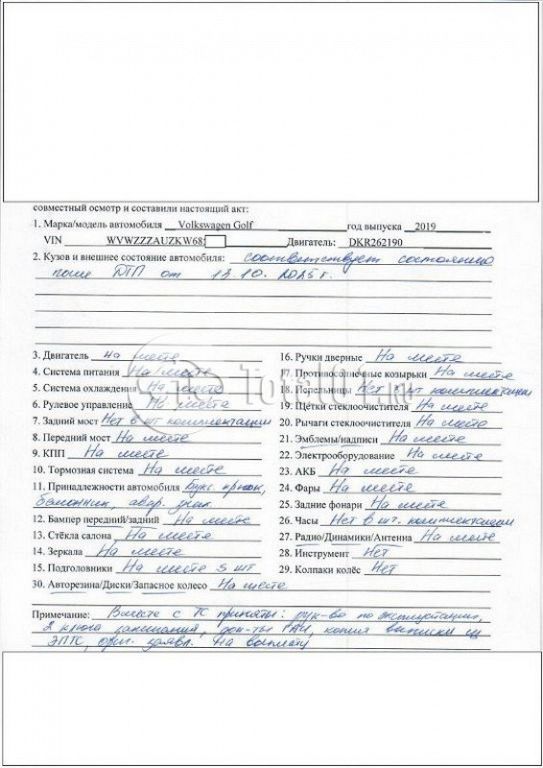 совместный осмотр и составили настоящий акт:
1. Марка/модель автомобиля Volkswagen Golf год выпуска 2019
VIN WVWZZZAUZKW68 Двигатель: DKR262190
2. Кузов и внешнее состояние автомобиля: соответствует состоянию
после ДТП от 13.10.2025г.
3. Двигатель на месте
4. Система питания На месте
5. Система охлаждения На месте
6. Рулевое управление На месте
7. Задний мост Нет в шт. комплектации
8. Передний мост На месте
9. КПП На месте
10. Тормозная система На месте
11. Принадлежности автомобиля Букс. крюк,
балонник, авар. знак
12. Бампер передний/задний На месте
13. Стёкла салона На месте
14. Зеркала На месте
15. Подголовники На месте 5 шт
16. Ручки дверные На месте
17. Противосолнечные козырьки На месте
18. Пепельницы Нет в шт комплектации
19. Щётки стеклоочистителя На месте
20. Рычаги стеклоочистителя На месте
21. Эмблемы/надписи На месте
22. Электрооборудование На месте
23. АКБ На месте
24. Фары На месте
25. Задние фонари На месте
26. Часы Нет в шт. комплектации
27. Радио/Динамики/Антенна На месте
28. Инструмент Нет
29. Колпаки колёс Нет
30. Авторезина/Диски/Запасное колесо На месте
Примечание: Вместе с ТС приняты: рук-во по эксплуатации,
2 ключа зажигания, док-ты ГАИ, копия выписки из
ЭПТС, ориг. заявл. На выплату
Total01.ru